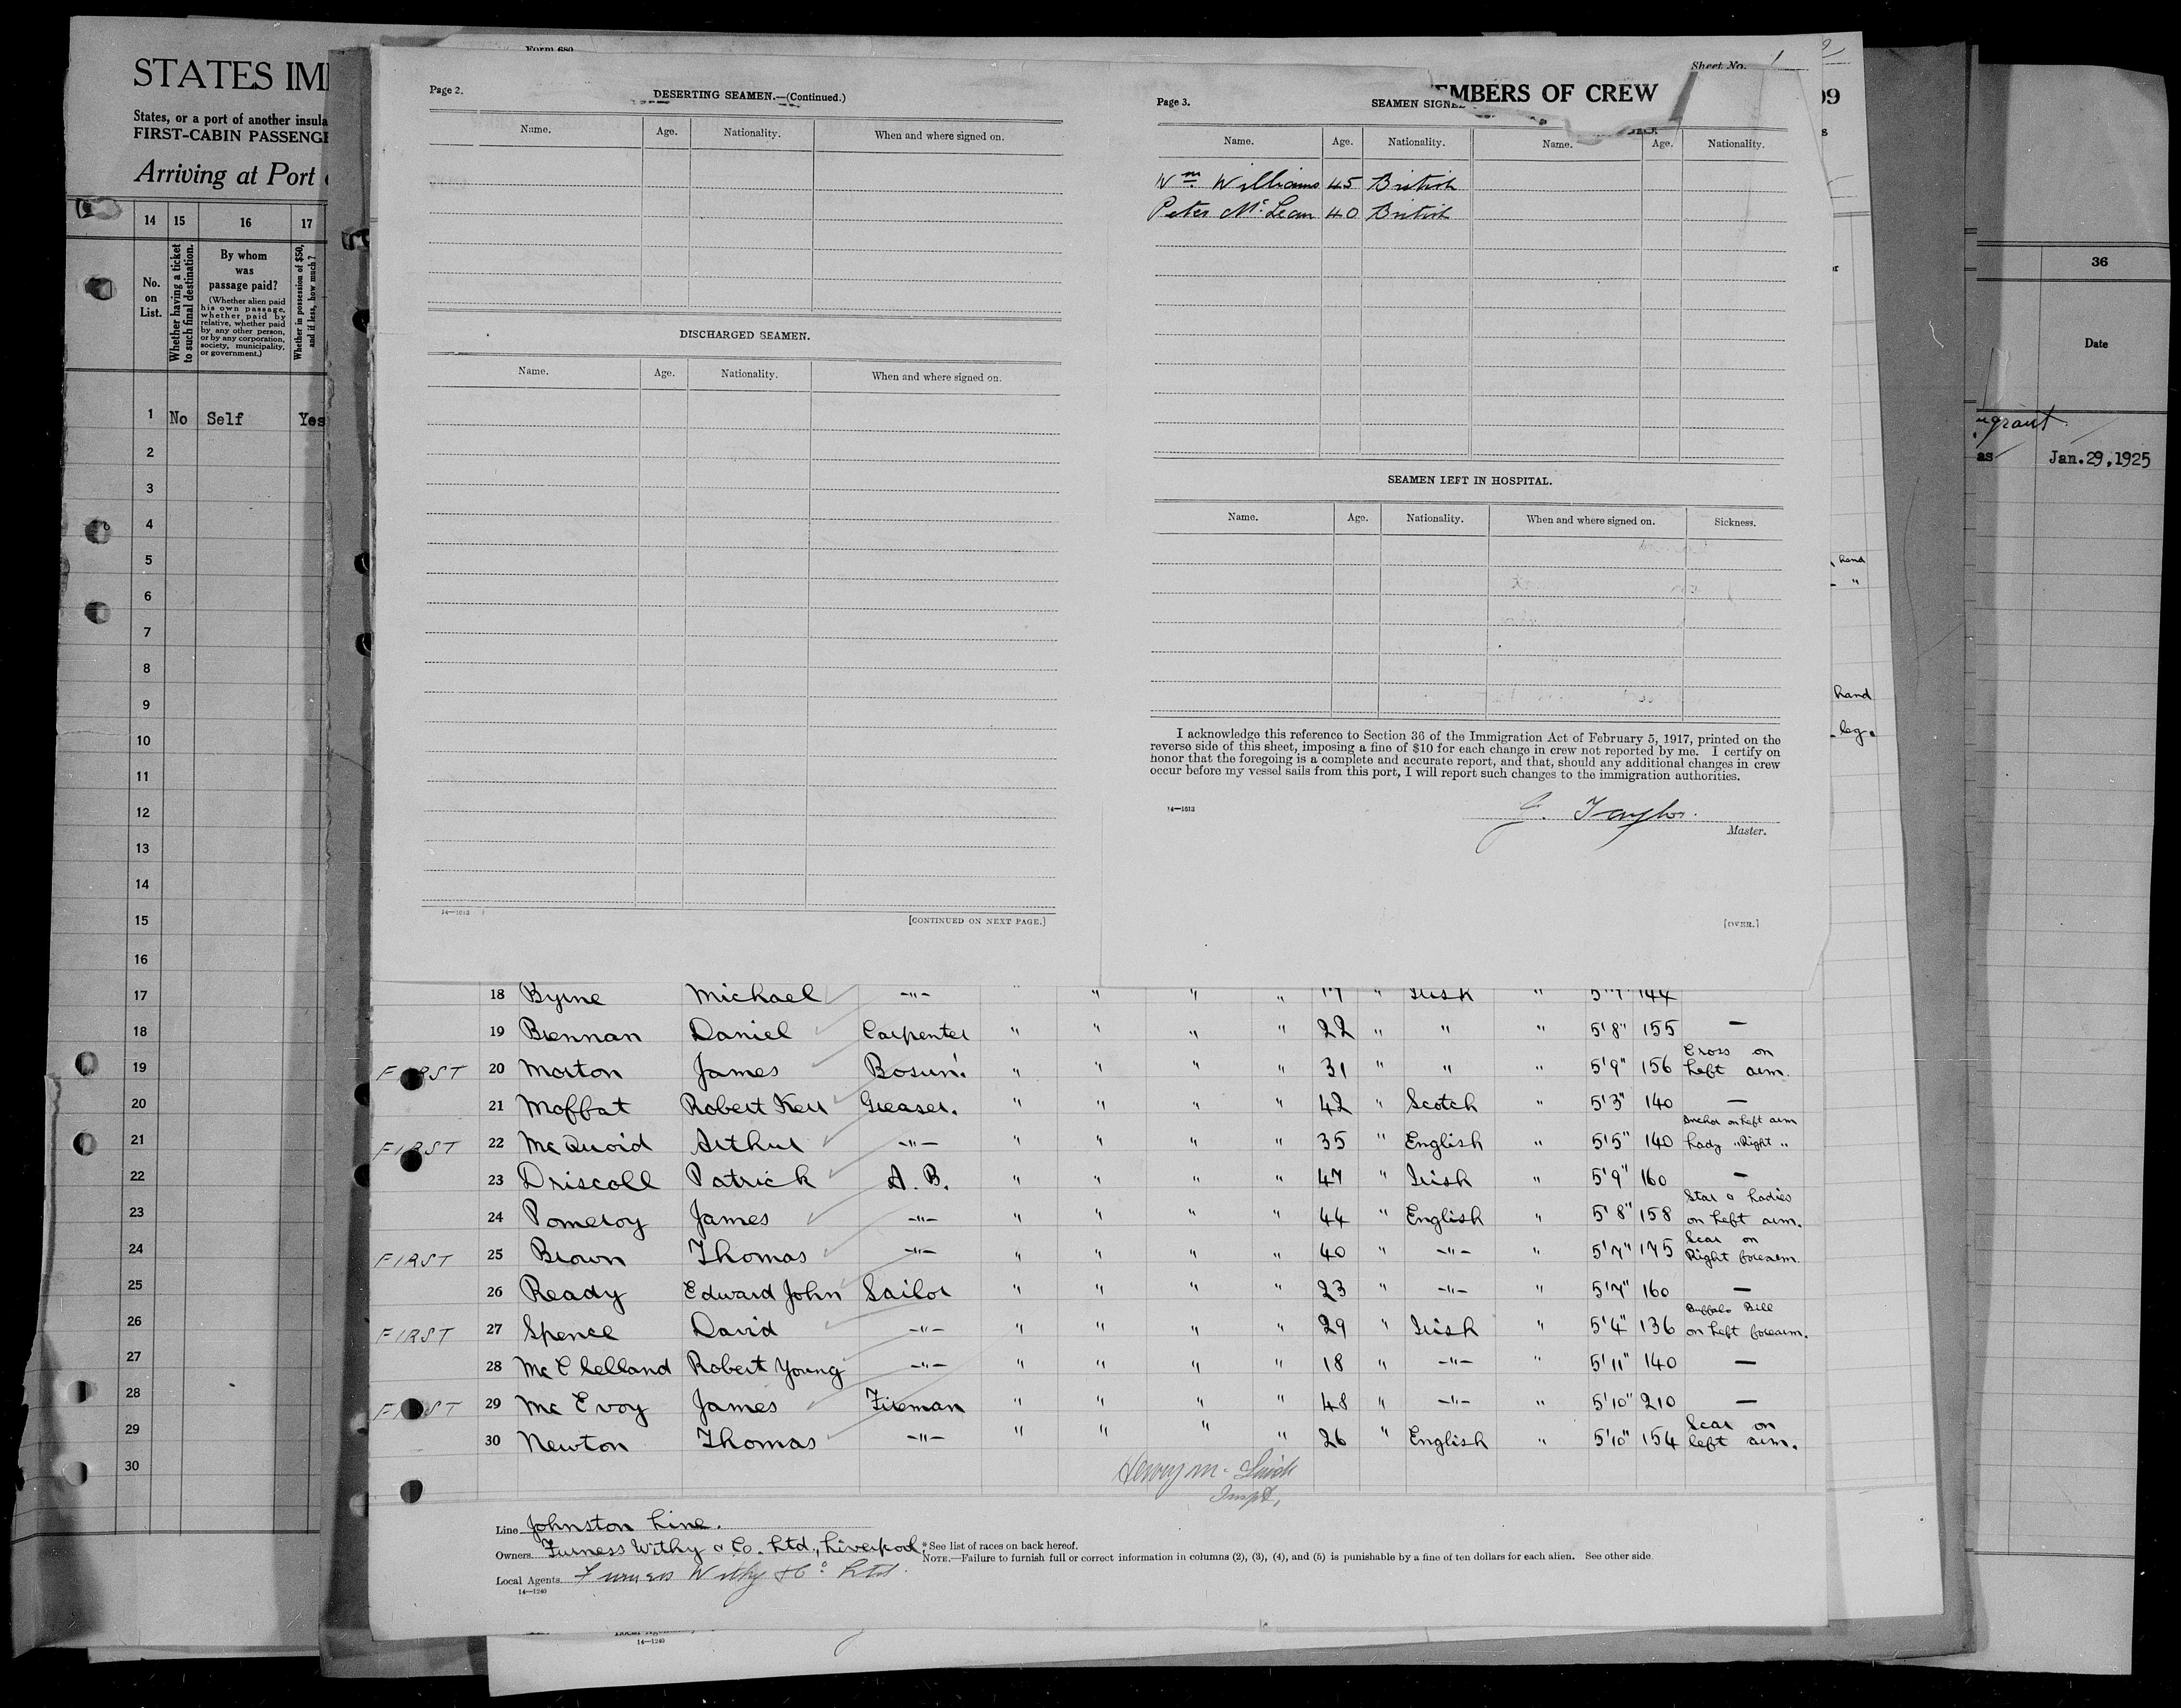 STATES IM
States, or a port of another insula
FIRST-CABIN PASSENGE
Arriving at Port
14 15 16 17
No. on List.
Whether having a ticket to such final destination.
By whom was passage paid?
(Whether alien paid his own passage, whether paid by relative, whether paid by any other person, or by any corporation, society, municipality, or government.)
Whether in possession of $50, and if less, how much?
1 No Self Yes
2
3
4
5
6
7
8
9
10
11
12
13
14
15
16
17
18
19
20
21
22
23
24
25
26
27
28
29
30
Form 680
Page 2.
DESERTING SEAMEN.—(Continued.)
Name. Age. Nationality. When and where signed on.
DISCHARGED SEAMEN.
Name. Age. Nationality. When and where signed on.
14—1613
[CONTINUED ON NEXT PAGE.]
Sheet No. 1
EMBERS OF CREW
Page 3.
SEAMEN SIGNE
Name. Age. Nationality. Name. Age. Nationality.
Wm Williams 45 British
Peter McLean 40 British
SEAMEN LEFT IN HOSPITAL.
Name. Age. Nationality. When and where signed on. Sickness.
I acknowledge this reference to Section 36 of the Immigration Act of February 5, 1917, printed on the
reverse side of this sheet, imposing a fine of $10 for each change in crew not reported by me. I certify on
honor that the foregoing is a complete and accurate report, and that, should any additional changes in crew
occur before my vessel sails from this port, I will report such changes to the immigration authorities.
14—1613
J. Taylor.
Master.
[OVER.]
18 Byrne Michael -"- " " " " 17 " Irish " 5'7" 144
19 Brennan Daniel Carpenter " " " " 22 " " " 5'8" 155 —
FIRST 20 Morton James Bosun. " " " " 31 " " " 5'9" 156 Cross on Left arm.
21 Moffat Robert Kerr Greaser. " " " " 42 " Scotch " 5'3" 140 —
FIRST 22 McQuoid Arthur -"- " " " " 35 " English " 5'5" 140 Anchor on Left arm Lady " Right "
23 Driscoll Patrick A.B. " " " " 47 " Irish " 5'9" 160 —
24 Pomeroy James -"- " " " " 44 " English " 5'8" 158 Star & Ladies on Left arm.
FIRST 25 Brown Thomas -"- " " " " 40 " -"- " 5'7" 175 Scar on Right forearm.
26 Ready Edward John Sailor " " " " 23 " -"- " 5'7" 160 —
FIRST 27 Spence David -"- " " " " 29 " Irish " 5'4" 136 Buffalo Bill on Left forearm.
28 McClelland Robert Young -"- " " " " 18 " -"- " 5'11" 140 —
FIRST 29 McEvoy James Fireman " " " " 48 " -"- " 5'10" 210 —
30 Newton Thomas -"- " " " " 26 " English " 5'10" 154 Scar on left arm.
Inspt,
Line Johnston Line.
Owners Furness Withy & Co. Ltd., Liverpool.
* See list of races on back hereof.
NOTE.—Failure to furnish full or correct information in columns (2), (3), (4), and (5) is punishable by a fine of ten dollars for each alien. See other side.
Local Agents Furness Withy & Co Ltd.
14—1240
14—1240
hand
"
hand
leg.
36
Date
Jan.29,1925